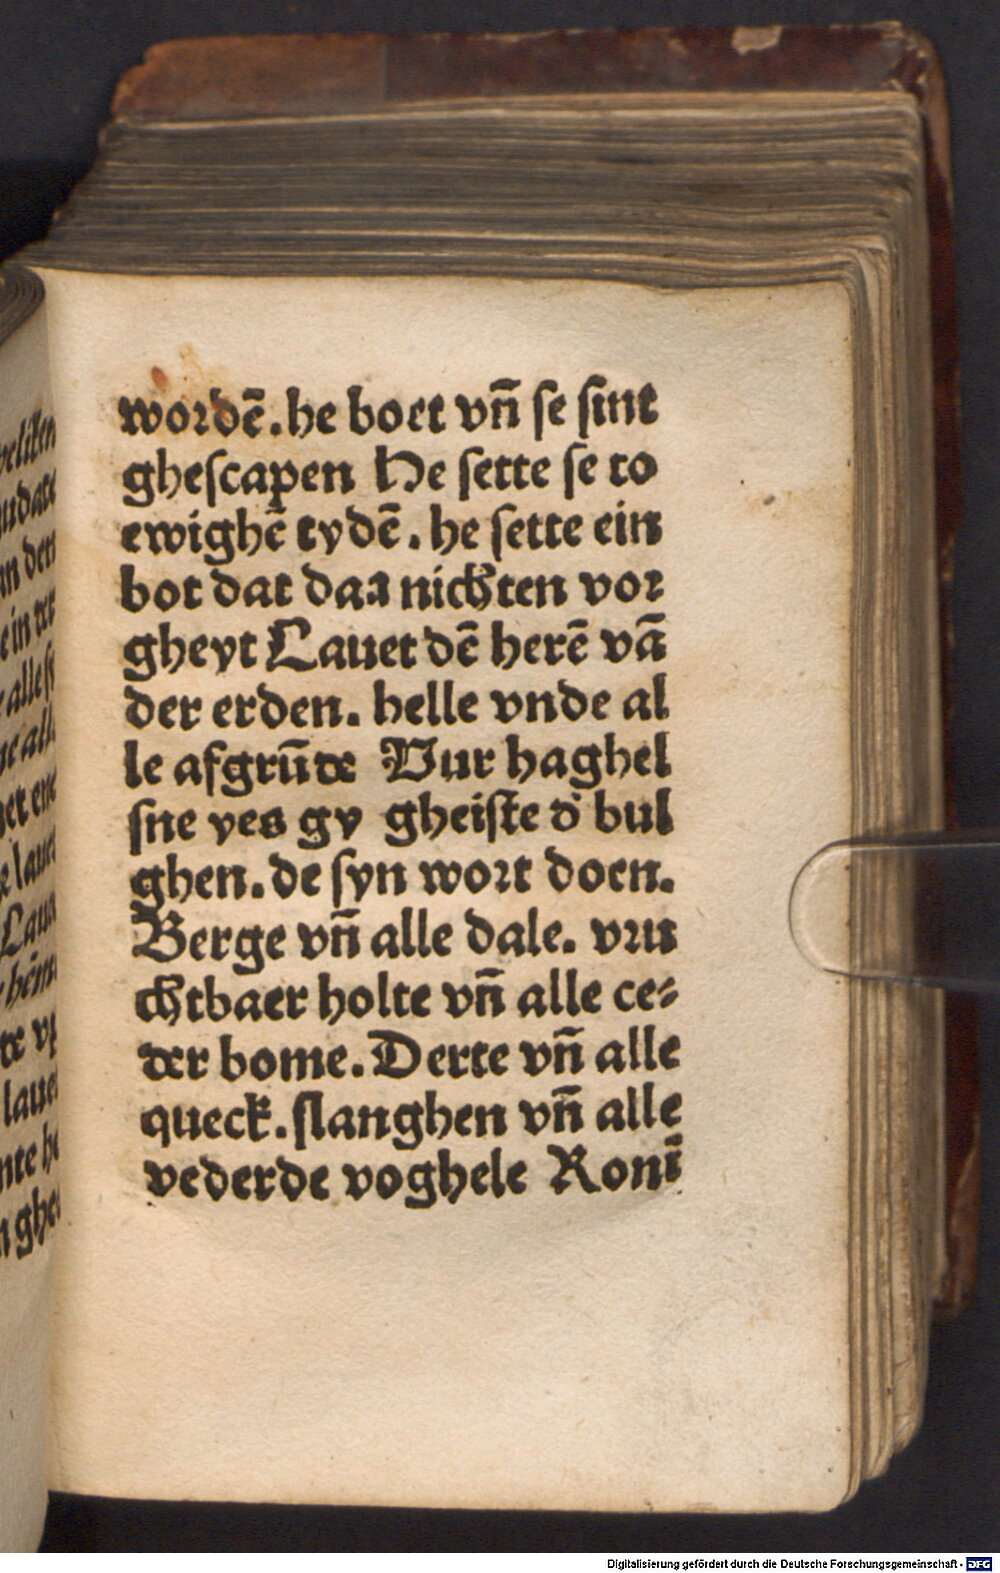 wordē. he boet vñ se sint
ghescapen He sette se to
ewighē tydē. he sette ein
bot dat daa nichten vor
gheyt Lauet dē herē vā
der erden. helle vnde al
le afgrūde Vur haghel
sne yes gy gheiste d' bul
ghen. de syn wort doen.
Berge vñ alle dale. vru
chtbaer holte vñ alle ce-
der bome. Derte vñ alle
queck. slanghen vñ alle
vederde voghele Ronī
Digitalisierung gefördert durch die Deutsche Forschungsgemeinschaft - DFG